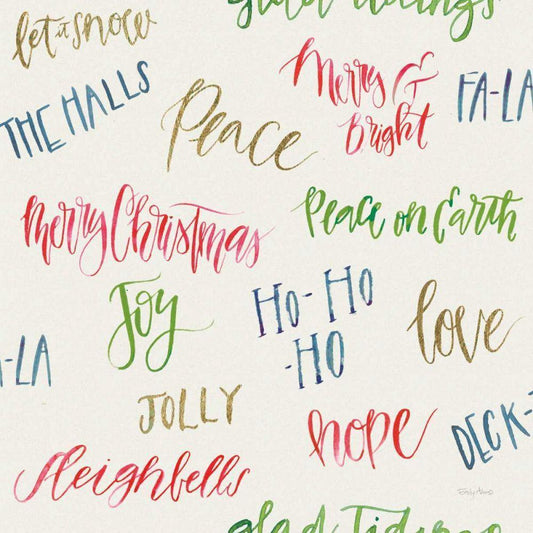 let it snow
glad tidings
THE HALLS
Peace
Merry &
Bright
FA-LA
Merry Christmas
Peace on Earth
Joy
Ho-Ho
-Ho
love
-LA
JOLLY
hope
DECK-
Sleighbells
glad Tidings